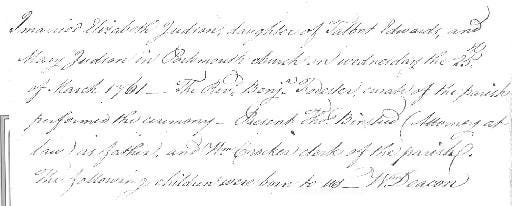 I married Elizabeth Judson, daughter of Talbot Edwards, and
Mary Judson in Portsmouth church on wednesday the 25th
of March 1761 — The Revd. Benjn. Forester, curate of the parish
performed the ceremony — Present Thos. Binsted (Attorney at
law) as father, and Wm. Crocker clerk of the parish.
The following children were born to us — W Deacon